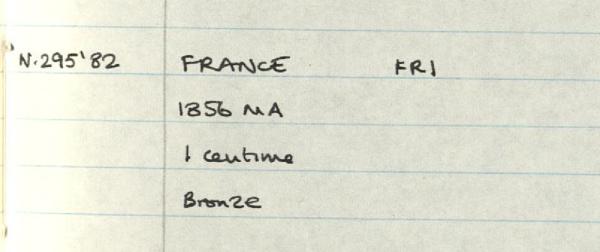 N.295'82 FRANCE FRI
1856 MA
1 centime
Bronze